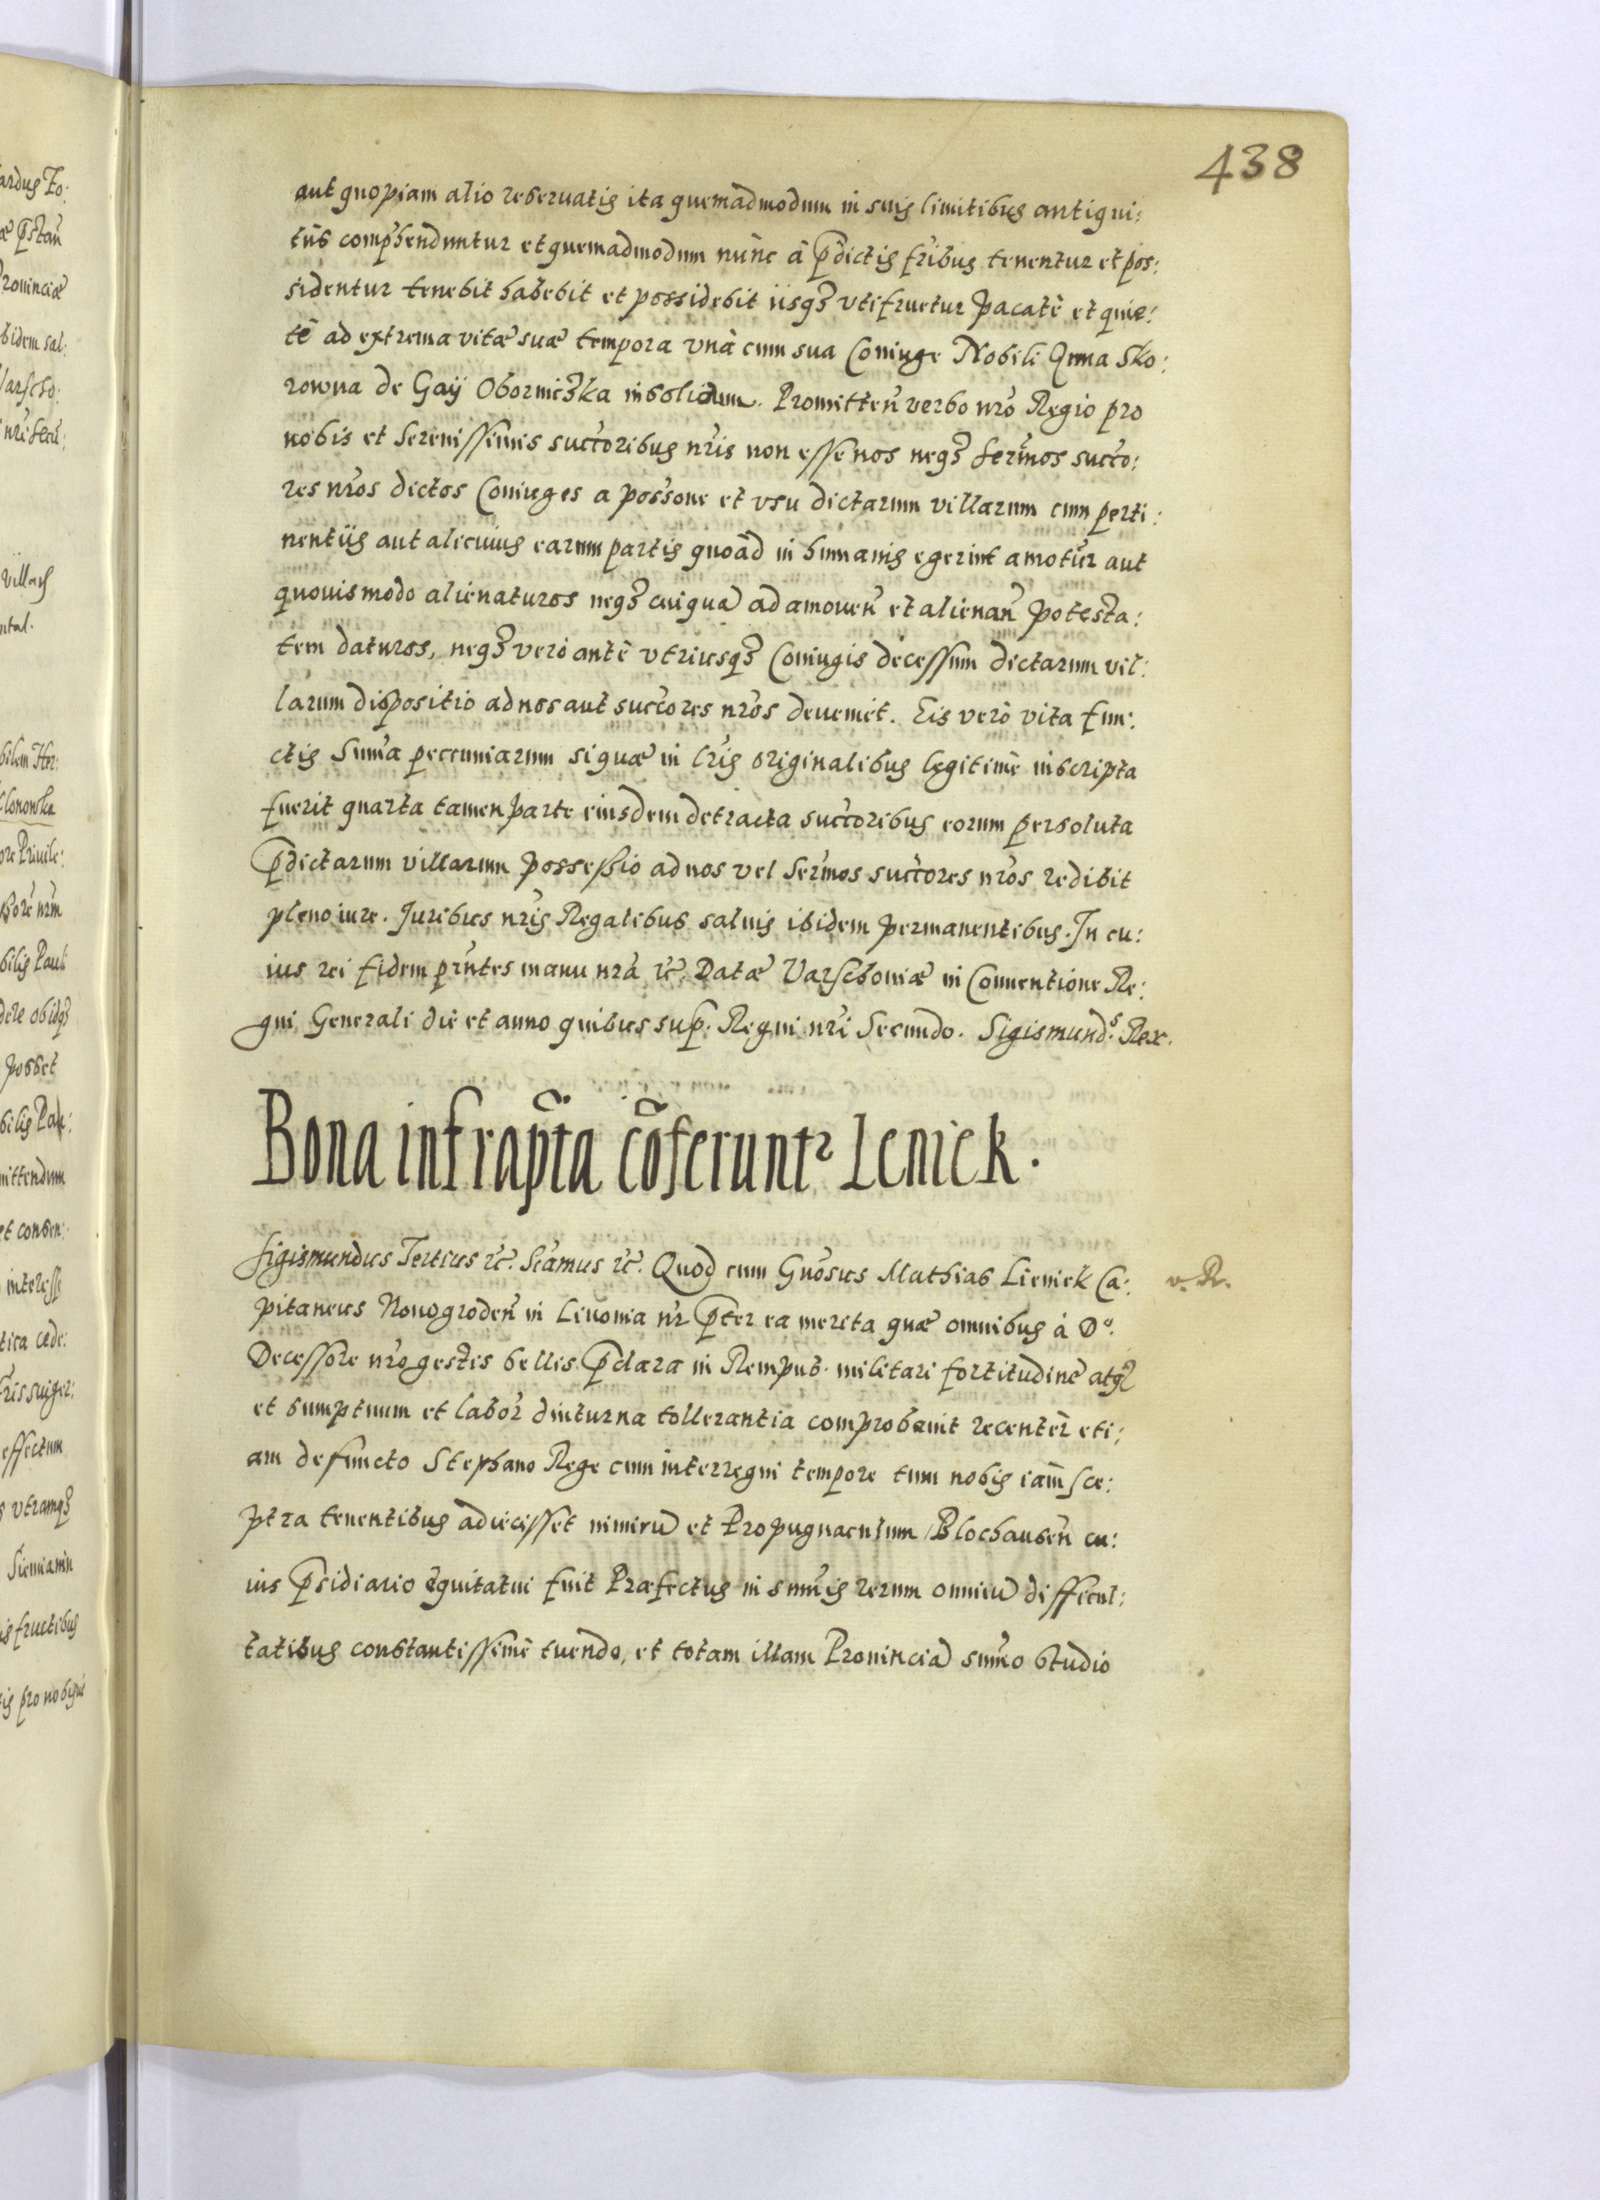 438
aut quopiam alio reservatis ita quemadmodum in suis limitibus antiqui:
tus comphenduntur et quemadmodum nunc à pdictis fribus tenentur et pos:
sidentur tenebit habebit et possidebit iisq3 utifruetur pacatè et quie:
tè ad extrema vitæ suæ tempora unà cum sua Coniuge Nobili Anna Sko:
rowna de Gaÿ Obornicska insolidum. Promitten̄ verbo nr̃o Regio pro
nobis et Serenissimis succ̃oribus nr̃is non esse nos neq3 Serm̃os succ̃o:
res nr̃os dictos Coniuges a poss̃one et usu dictarum villarum cum perti:
nentiis aut alicuius earum partis quoad in humanis egerint amotur̃ aut
quovismodo alienaturos neq3 cuiquã ad amoven̄ et alienan̄ potesta:
tem daturos, neq3 verò antè utriusq3 Coniugis decessum dictarum vil:
larum dispositio ad nos aut succ̃ores nr̃os deveniet. Eis verò vita fun:
ctis Sum̃a peccuniarum si quæ in lr̃is originalibus legitimè inscripta
fuerit quarta tamen parte eiusdem detracta succ̃oribus eorum persoluta
pdictarum villarum possessio ad nos vel Serm̃os succ̃ores nr̃os redibit
pleno iure. Juribus nr̃is Regalibus salvis ibidem permanentibus. In cu:
ius rei fidem pñtes manu nr̃a &c̃. Datæ Varschoviæ in Conventione Re:
gni Generali die et anno quibus sup. Regni nr̃i Secundo. Sigismund⁹. Rex.
Bona infrapt̃a cõferuntr Leniek.
Sigismundus Tertius &c̃. Sc̃amus &c̃. Quod cum Gnõsus Mathias Lieniek Ca:
v. R.
pitaneus Novogroden̄ in Livonia nr̃ pter ea merita quæ omnibus à Do.
Decessore nr̃o gestis bellis pclara in Rempub. militari fortitudine atq3
et sumptuum et labor̃ diuturna tollerantia comprobavit recentèr eti:
am defuncto Stephano Rege cum interregni tempore tum nobis iam̃ sce:
ptra tenentibus adiecisset nimirũ et Propugnaculum Blochausen̄ cu:
ius psidiario equitatui fuit Præfectus in sum̃is rerum omniũ difficul:
tatibus constantissimè tuendo, et totam illam Provinciã sum̃o studio